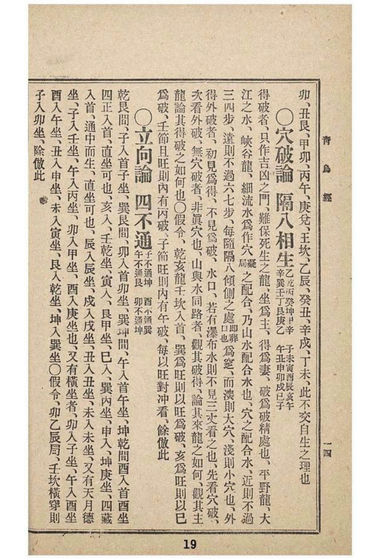 青烏經
一四
卯、丑艮、甲卯、丙午、庚兌、壬坎、乙辰、癸丑、辛戌、丁未、此不交自生之理也
〇穴破論 隔八相生
得破者、只作吉凶之門、難保死生之龍、坐爲主、得爲妻、破爲破精處也、平野龍、大
江之水、峽谷龍、細流水爲作局之配合、乃山水配合水也、穴之配合水、近則不過
三四步、遠則不過六七步、每隨隔八傾側之處爲窓、而濶則大穴、淺則小穴也、外
得外破者、初見爲得、不見爲破、水口、若有瀑布水則不見三丈看之一也、先看穴破、
次看外破、無穴破者、非眞穴也、山與水同路者、觀其破得、論其來龍之如何、觀其主
龍論其得破之如何也〇假令、乾亥龍壬坎入首、巽爲得則以旺爲破、亥爲旺則以巳
爲破、壬節且旺則內有丙破、子節旺則內有午破、每以旺對冲看 餘倣此
〇立向論 四不通 子不通坤 酉不通巽 午不通艮 卯不通乾
乾艮間、子入首子坐、巽艮間、卯入首卯坐、巽坤間、午入首午坐、坤乾間酉入首酉坐
四正入首、直坐可也、亥入、壬乾坐、寅入、艮甲坐、巳入、巽丙坐、申入、坤庚坐、四藏
入首、通中而生、直坐可也、辰入辰坐、戌入戌坐、丑入丑坐、未入未坐、又有天月德
坐、子入壬坐、午入丙坐、卯入甲坐、酉入庚坐也、又有橫坐者、子入卯坐、卯入子坐、
酉入午坐、丑入申坐、未入寅坐、艮入乾坐、坤入巽坐〇假令、卯乙辰局、壬坎橫穿則
子入卯坐、餘倣此
19